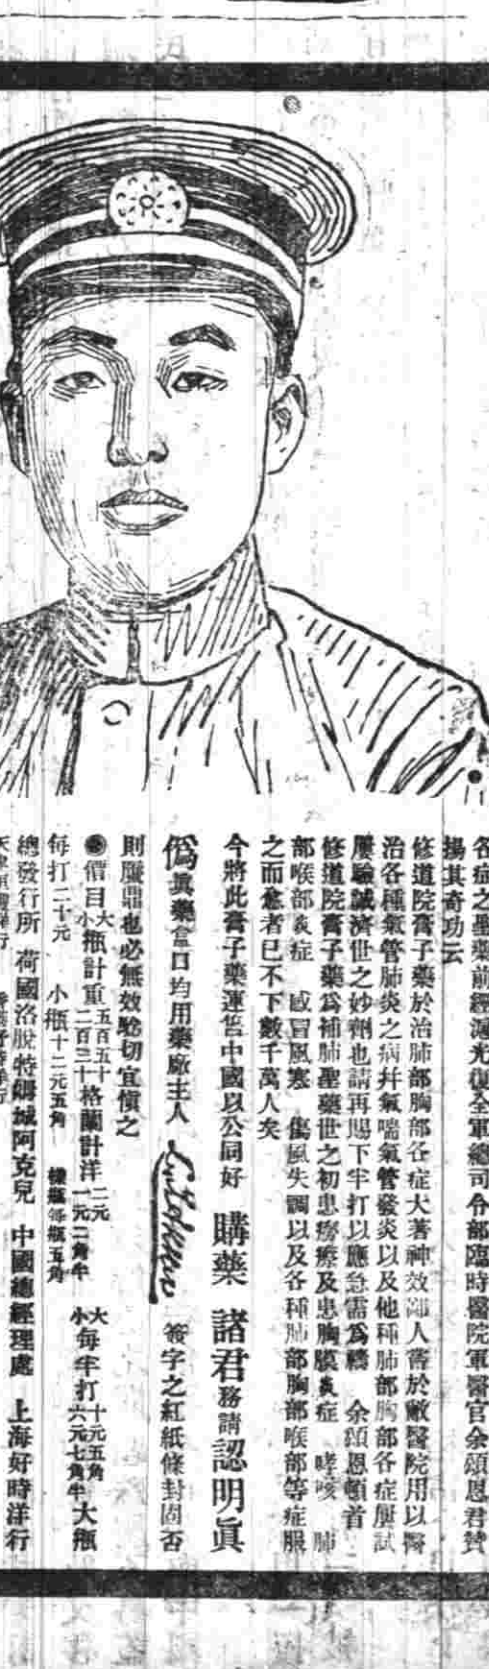 各症之聖藥前經滬光復全軍總司令部臨時醫院軍醫官余頌恩君贊
揚其奇功云
修道院膏子藥於治肺部胸部各症大著神效鄙人舊於敝醫院用以醫
治各種氣管肺炎之病幷氣喘氣管發炎以及他種肺部胸部各症屢試
屢驗誠濟世之妙劑也請再賜下半打以應急需爲禱 余頌恩頓首
修道院膏子藥爲補肺聖藥世之初患癆瘵及患胸膜炎症 哮咳 肺
部喉部炎症 感冒風寒 傷風失調以及各種肺部胸部喉部等症服
之而愈者已不下數千萬人矣
今將此膏子藥運售中國以公同好 購藥 諸君務請認明眞
僞眞藥盒口均用藥廠主人 簽字之紅紙條封固否
則贋鼎也必無效騐切宜愼之
價目大瓶計重五百五十格蘭計洋二元 大每半打十元五角大瓶
小瓶計重二百三十格蘭計洋一元二角半 小每半打六元七角半
每打二十元 小瓶十二元五角 樣瓶每瓶五角
總發行所 荷國洛脫特姆城阿克兒 中國總經理處 上海好時洋行